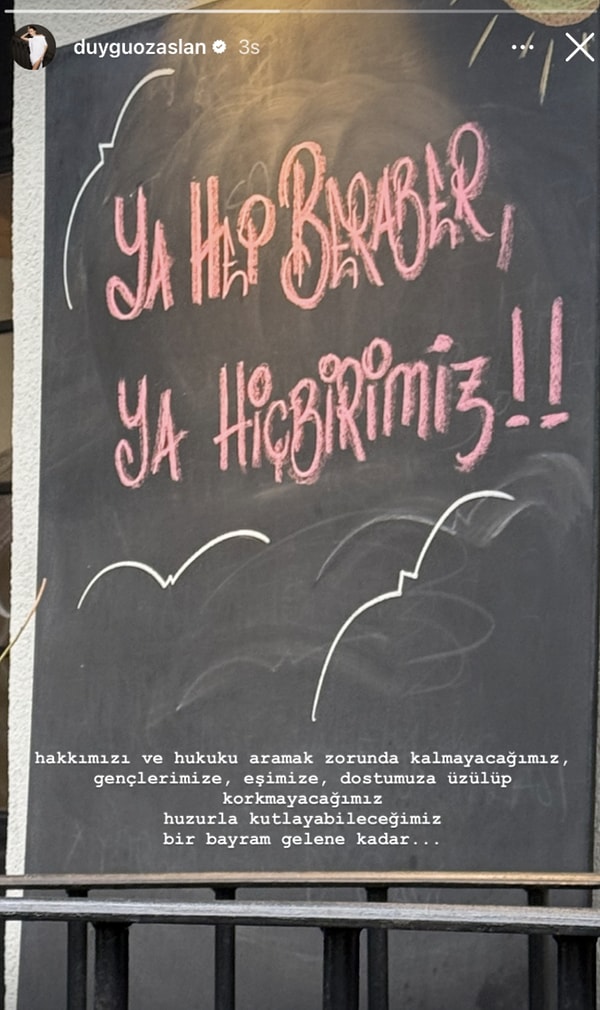 duyguozaslan 3s
YA HEP BERABER,
YA HİÇBİRİMİZ!!
hakkımızı ve hukuku aramak zorunda kalmayacağımız,
gençlerimize, eşimize, dostumuza üzülüp
korkmayacağımız
huzurla kutlayabileceğimiz
bir bayram gelene kadar...